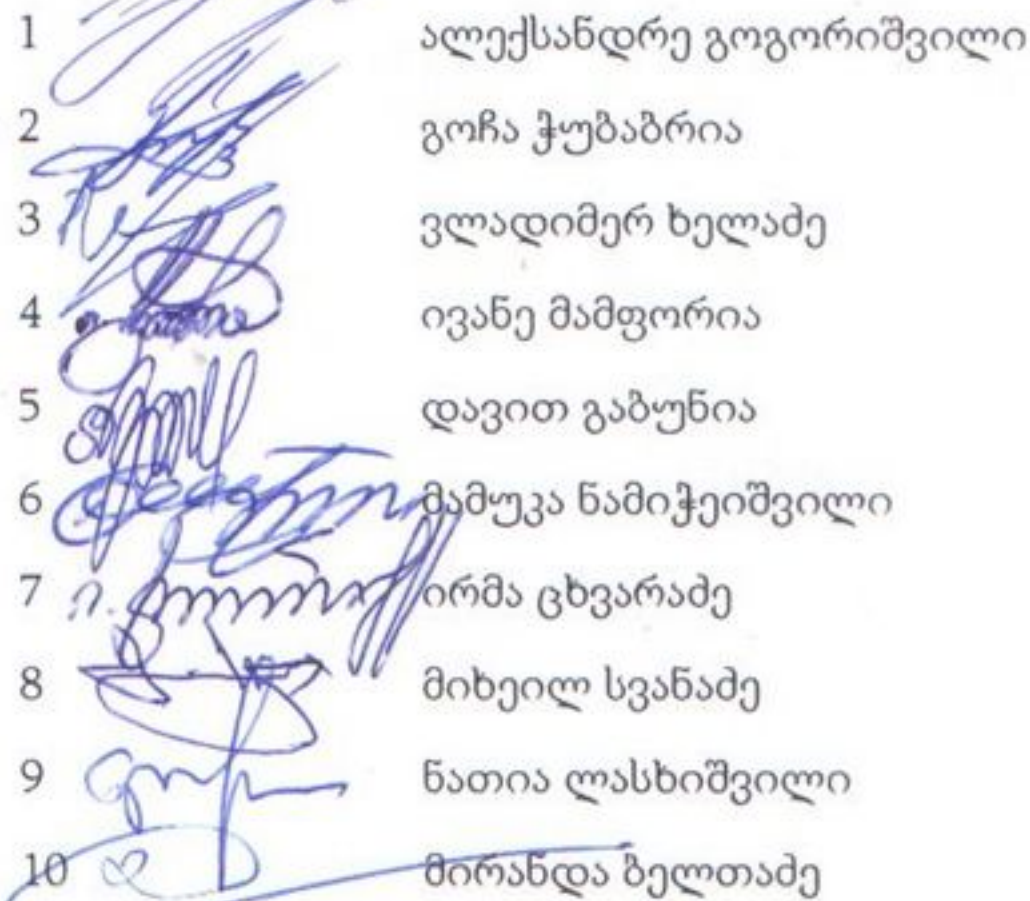 1 ალექსანდრე გოგორიშვილი
2 გოჩა ჭუბაბრია
3 ვლადიმერ ხელაძე
4 ივანე მამფორია
5 დავით გაბუნია
6 მამუკა ნამიჭეიშვილი
7 ირმა ცხვარაძე
8 მიხეილ სვანაძე
9 ნათია ლასხიშვილი
10 მირანდა ბელთაძე